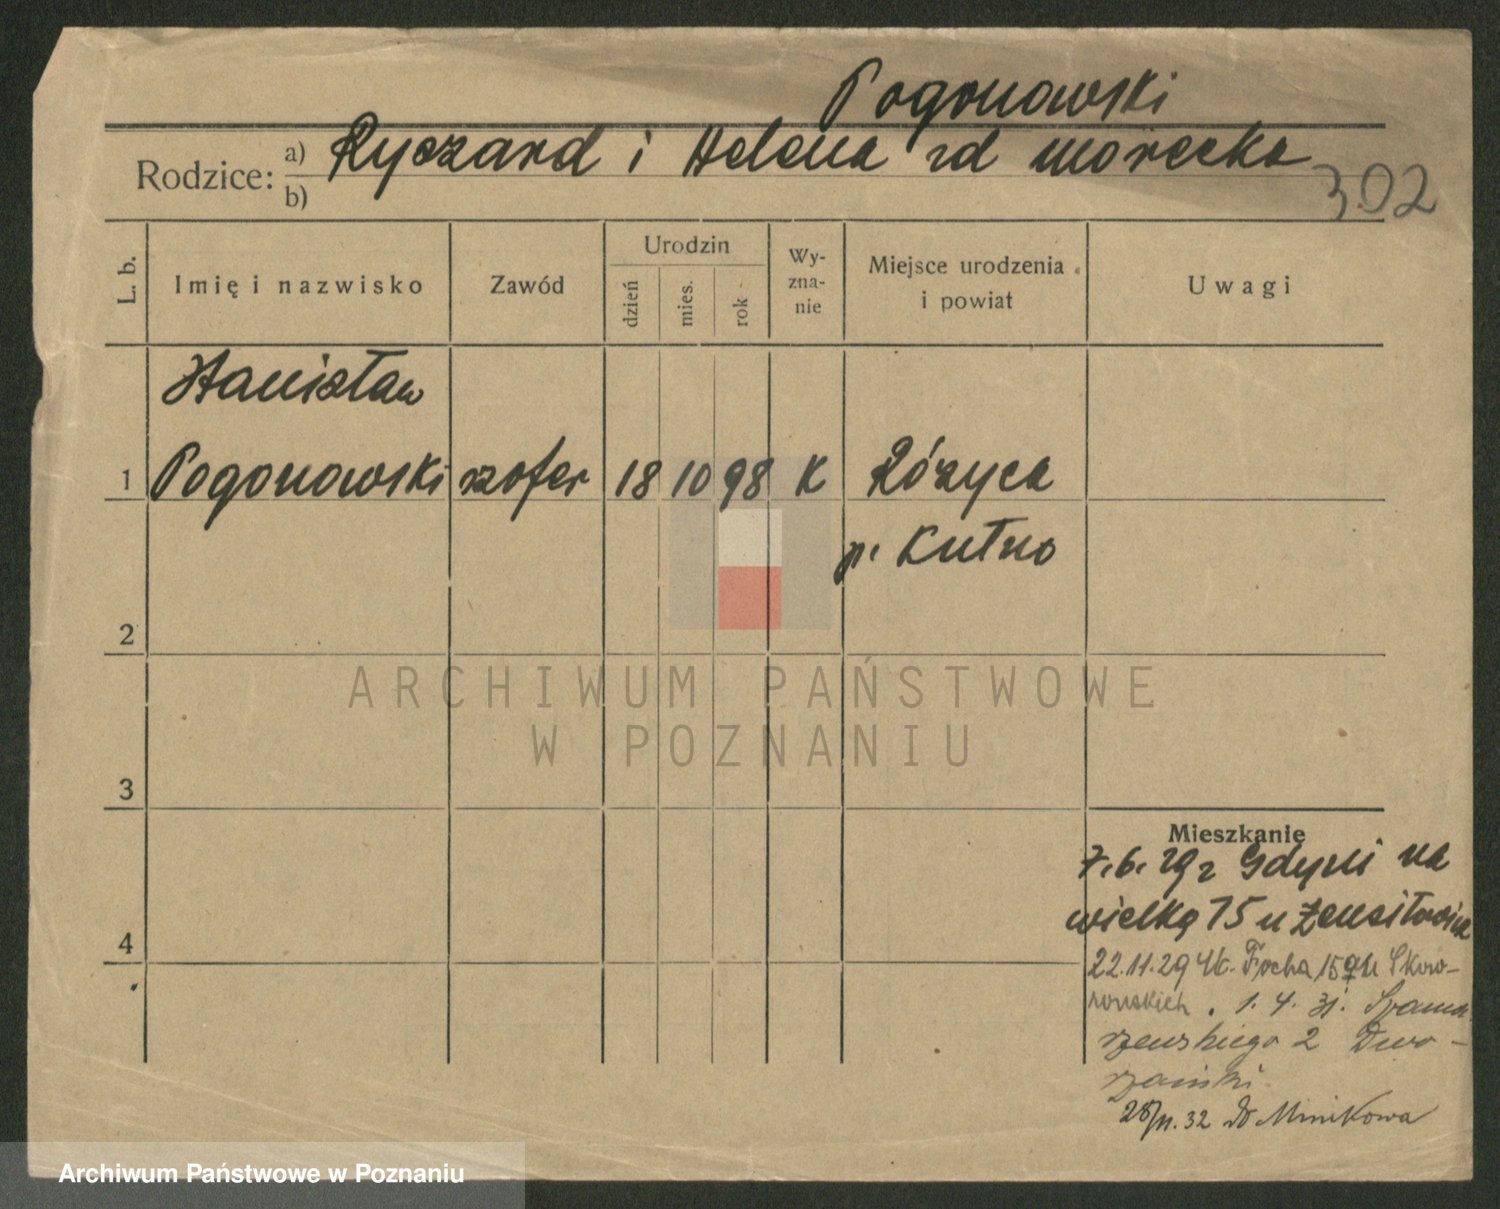 Pogonowski
Rodzice: a) Ryszard i Helena zd Morecka
b)
302
L. b.
Imię i nazwisko
Zawód
Urodzin
dzień
mies.
rok
Wy-
zna-
nie
Miejsce urodzenia
i powiat
Uwagi
Stanisław
1 Pogonowski szofer 18 10 98 K Różyca
p. Kutno
2
3
4
ARCHIWUM PAŃSTWOWE
W POZNANIU
Mieszkanie
7.6.29 z Gdyni na
wielką 15 u
22.11.29 Focha 159 u Skow-
rońskich. 1.4.31. Szama-
rzewskiego 2 Dwo-
rzański
28/11.32 do Minikowa
Archiwum Państwowe w Poznaniu